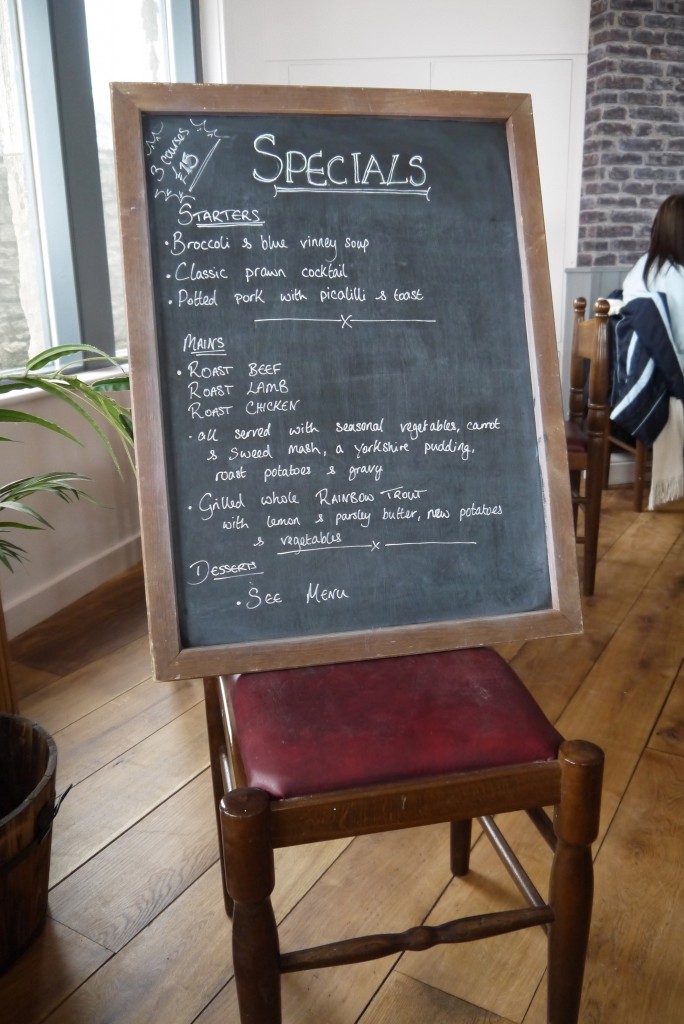 3 courses
£15
SPECIALS
STARTERS
• Broccoli & blue vinney soup
• Classic prawn cocktail
• Potted pork with picalilli & toast
MAINS
• ROAST BEEF
ROAST LAMB
ROAST CHICKEN
- all served with seasonal vegetables, carrot
& sweed mash, a yorkshire pudding,
roast potatoes & gravy
• Grilled whole RAINBOW TROUT
with lemon & parsley butter, new potatoes
& vegetables
DESSERTS
• SEE MENU